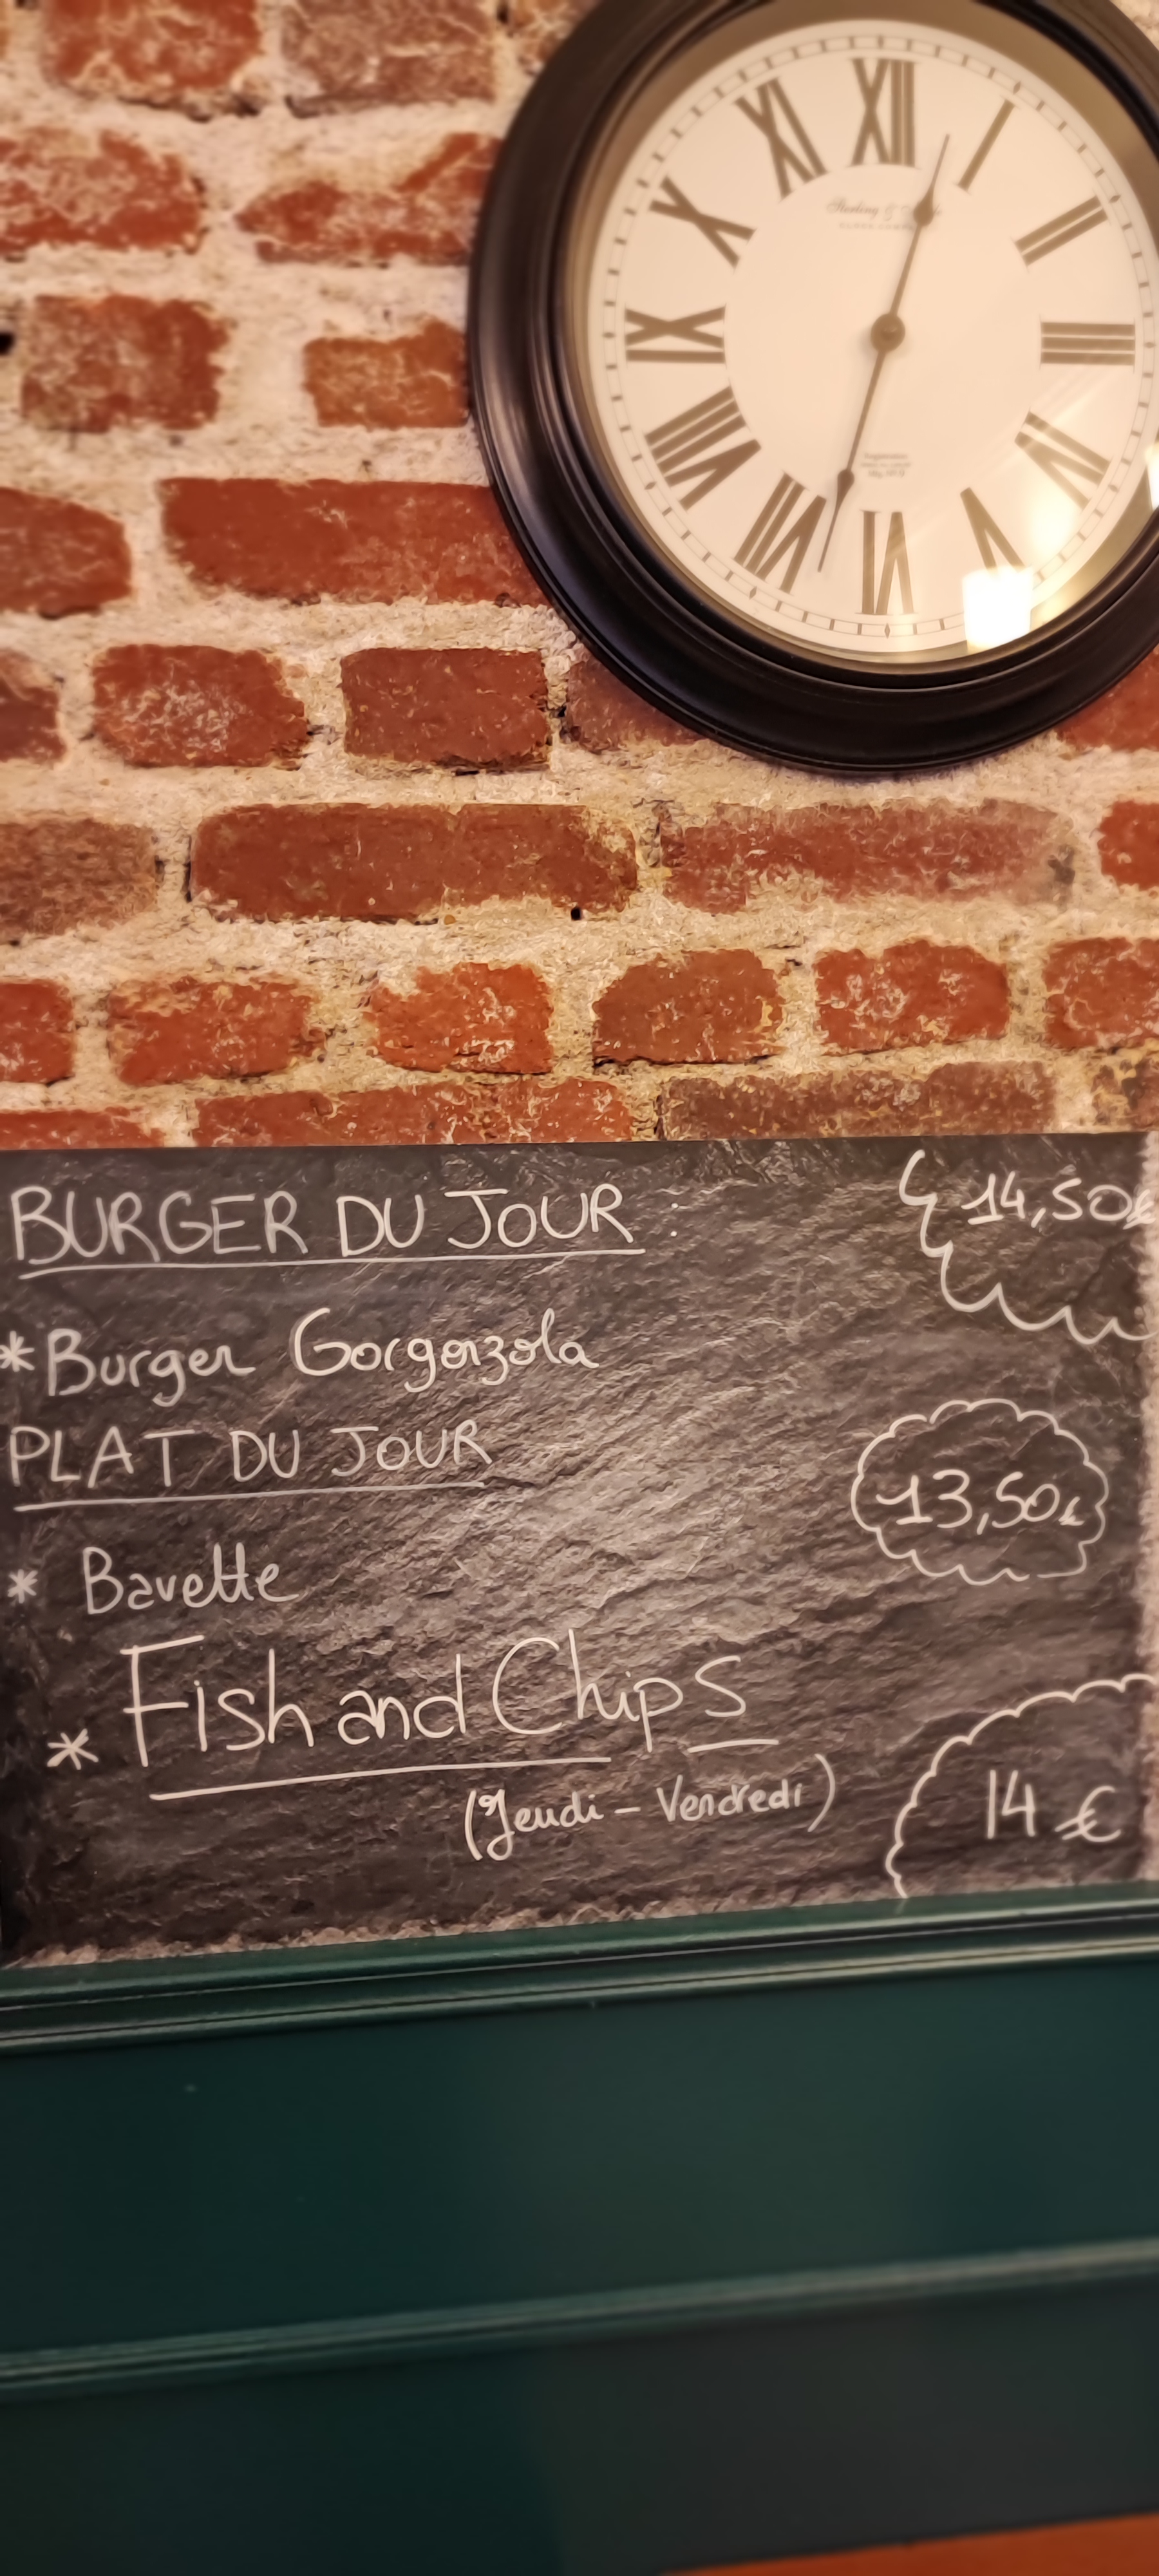 XII
I
II
III
IIII
V
VI
VII
VIII
IX
X
XI
BURGER DU JOUR :
14,50€
*Burger Gorgonzola
PLAT DU JOUR
13,50€
* Bavette
* Fish and Chips
(Jeudi - Vendredi)
14 €